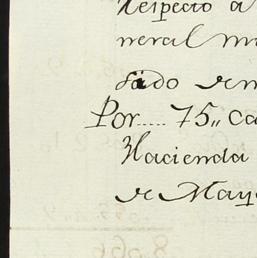 Respecto a
neral m
sado de m
Por.... 75,, ca
Hacienda
de May